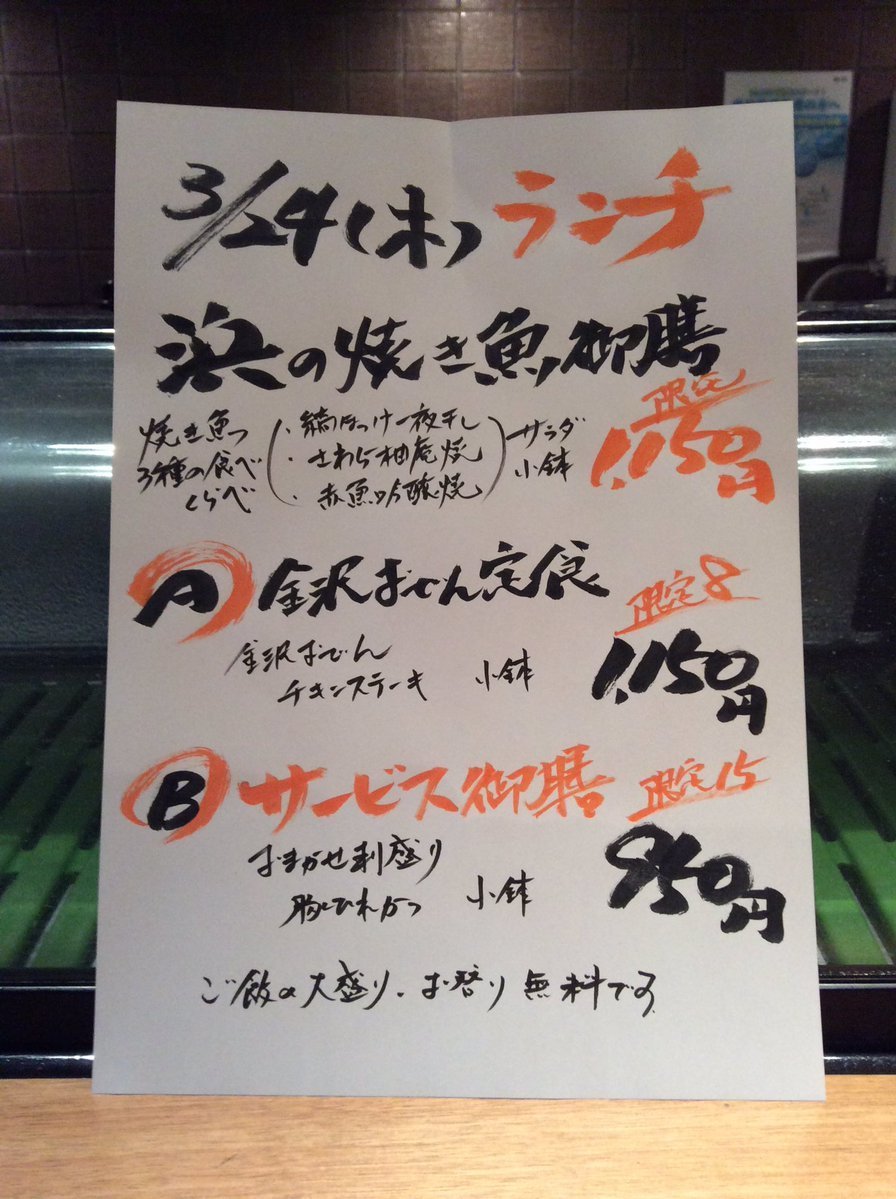 3/24(木)ランチ
浜の焼き魚御膳
限定
焼き魚
3種の食べ
くらべ
・縞ほっけ一夜干し
・さわら柚庵焼
・赤魚吟醸焼
サラダ
小鉢
1,150円
A 金沢おでん定食
限定8
金沢おでん
チキンステーキ 小鉢
1,150円
B サービス御膳 限定15
おまかせ刺盛り
ひれかつ 小鉢
950円
ご飯の大盛り、お替り無料です